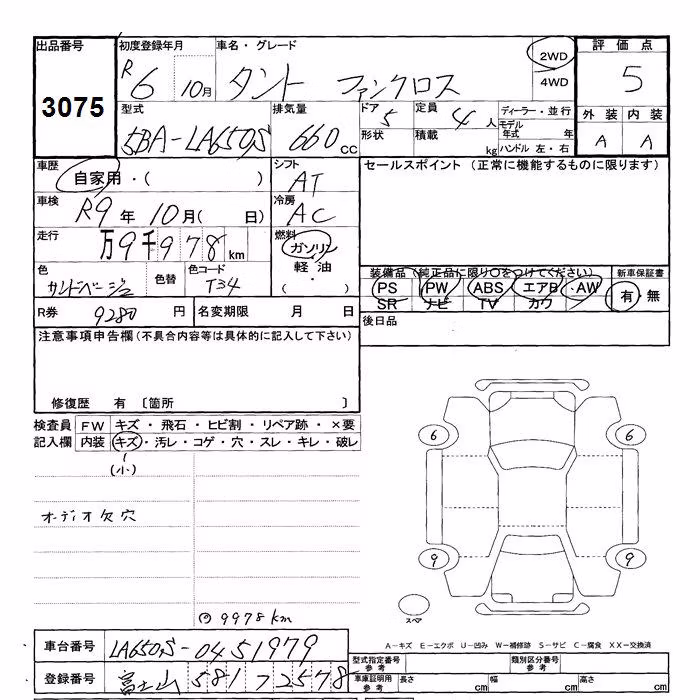 出品番号 初度登録年月 車名・グレード 2WD 評価点
3075 R6 10月 タント ファンクロス 4WD 5
型式 排気量 ドア 定員 ディーラー・並行 外装 内装
5BA-LA650S 660cc 5 4人 モデル年式 年 A A
形状 積載 kg ハンドル 左・右
車歴 シフト セールスポイント (正常に機能するものに限ります)
自家用・( ) AT
車検 冷房
R9年 10月( 日) AC
走行 燃料
万9千978km ガソリン
軽油
( ・ )
色 色替 色コード 装備品(純正品に限り〇をつけてください) 新車保証書
サンドベージュ T34 PS PW ABS エアB AW 有・無
SR ナビ TV カワ
R券 9280円 名変期限 月 日 後日品
注意事項申告欄(不具合内容等は具体的に記入して下さい)
修復歴 有 〔箇所 〕
検査員 FW キズ・飛石・ヒビ割・リペア跡・×要
記入欄 内装 キズ・汚レ・コゲ・穴・スレ・キレ・破レ
(小)
6 6
オーディオ欠穴
9 9
9978km
スペア
A-キズ E-エクボ U-凹み W-補修跡 S-サビ C-腐食 XX-交換済
車台番号 LA650S-0451979
型式指定番号 参考 類別区分番号 参考
登録番号 富士山 581 7 2578
車庫証明用 参考 長さ cm 幅 cm 高さ cm